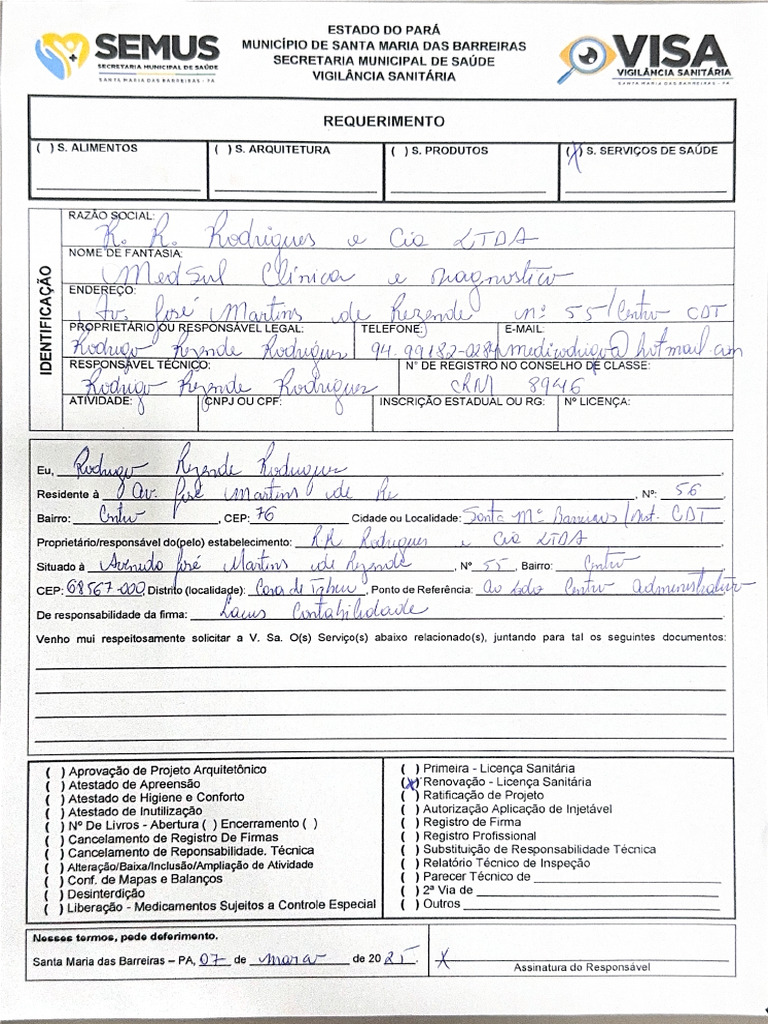 SEMUS
SECRETARIA MUNICIPAL DE SAÚDE
SANTA MARIA DAS BARREIRAS - PA
ESTADO DO PARÁ
MUNICÍPIO DE SANTA MARIA DAS BARREIRAS
SECRETARIA MUNICIPAL DE SAÚDE
VIGILÂNCIA SANITÁRIA
VISA
VIGILÂNCIA SANITÁRIA
SANTA MARIA DAS BARREIRAS - PA
REQUERIMENTO
( ) S. ALIMENTOS ( ) S. ARQUITETURA ( ) S. PRODUTOS (X) S. SERVIÇOS DE SAÚDE
IDENTIFICAÇÃO
RAZÃO SOCIAL:
R. R. Rodrigues e Cia LTDA
NOME DE FANTASIA:
MedSul Clínica e Diagnostico
ENDEREÇO:
Av. José Martins de Rezende nº 55/Centro CDT
PROPRIETÁRIO OU RESPONSÁVEL LEGAL: TELEFONE: E-MAIL:
Rodrigo Rezende Rodrigues 94. 99182-0284 medirodrigo@hotmail.com
RESPONSÁVEL TÉCNICO: N° DE REGISTRO NO CONSELHO DE CLASSE:
Rodrigo Rezende Rodrigues CRM 8946
ATIVIDADE: CNPJ OU CPF: INSCRIÇÃO ESTADUAL OU RG: Nº LICENÇA:
Eu, Rodrigo Rezende Rodrigues,
Residente à Av. José Martins de Re, Nº: 56
Bairro: Centro, CEP: 76 Cidade ou Localidade: Santa Mª Barreiras/Dist. CDT
Proprietário/responsável do(pelo) estabelecimento: RR Rodrigues e Cia LTDA
Situado à Avenida José Martins de Rezende, N° 55, Bairro: Centro
CEP: 68567-000 Distrito (localidade): Casa de Tábua, Ponto de Referência: Ao lado Centro administrativo
De responsabilidade da firma: Lacus Contabilidade
Venho mui respeitosamente solicitar a V. Sa. O(s) Serviço(s) abaixo relacionado(s), juntando para tal os seguintes documentos:
( ) Aprovação de Projeto Arquitetônico
( ) Atestado de Apreensão
( ) Atestado de Higiene e Conforto
( ) Atestado de Inutilização
( ) Nº De Livros - Abertura ( ) Encerramento ( )
( ) Cancelamento de Registro De Firmas
( ) Cancelamento de Reponsabilidade. Técnica
( ) Alteração/Baixa/Inclusão/Ampliação de Atividade
( ) Conf. de Mapas e Balanços
( ) Desinterdição
( ) Liberação - Medicamentos Sujeitos a Controle Especial
( ) Primeira - Licença Sanitária
(X) Renovação - Licença Sanitária
( ) Ratificação de Projeto
( ) Autorização Aplicação de Injetável
( ) Registro de Firma
( ) Registro Profissional
( ) Substituição de Responsabilidade Técnica
( ) Relatório Técnico de Inspeção
( ) Parecer Técnico de
( ) 2ª Via de
( ) Outros
Nesses termos, pede deferimento.
Santa Maria das Barreiras – PA, 07 de março de 2025.
X
Assinatura do Responsável